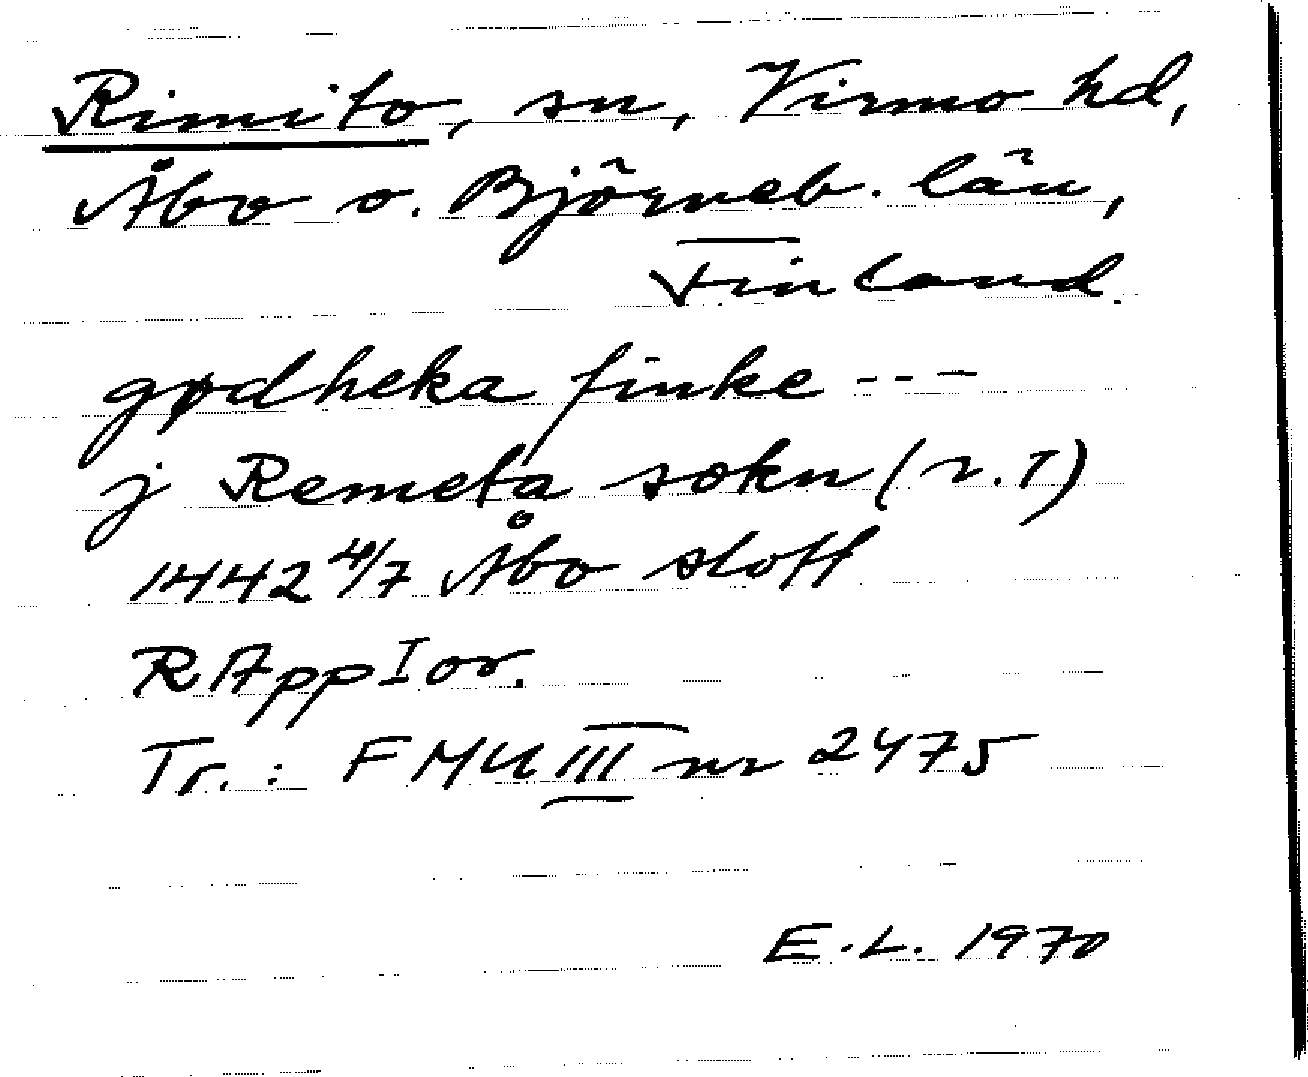 Rimito, sn, Virmo hd,
Åbo o. Björneb. län,
Finland.
gødheka finke ---
j Remeta sokn (r. T)
1442 4/7 Åbo slott
RAppIor.
Tr.: FMU III nr 2475
E.L. 1970